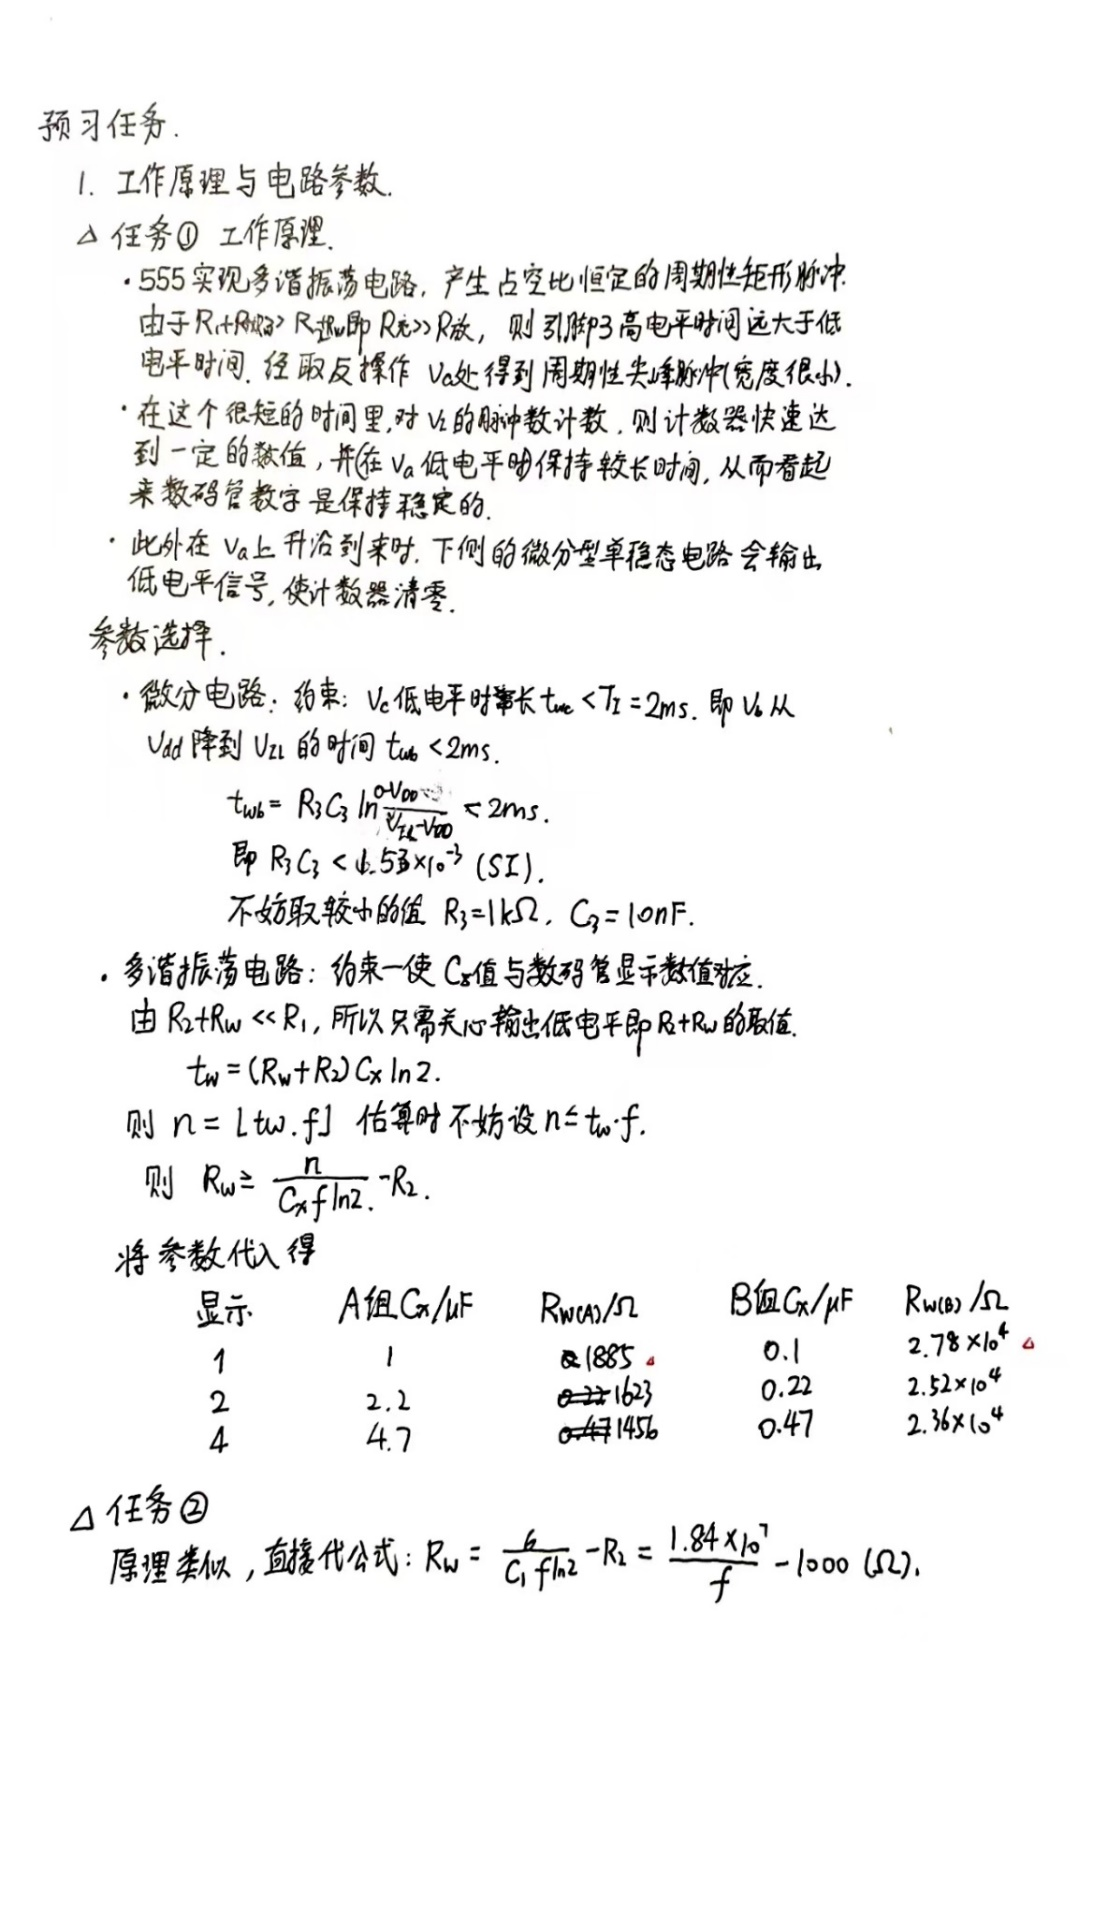 预习任务.
1. 工作原理与电路参数.
△ 任务① 工作原理.
· 555实现多谐振荡电路, 产生占空比恒定的周期性矩形脉冲.
由于R₁+R₂ >> R 即 R充>>R放, 则引脚3高电平时间远大于低
电平时间. 经取反操作 Va处得到周期性尖峰脉冲(宽度很小).
· 在这个很短的时间里,对V₁的脉冲数计数, 则计数器快速达
到一定的数值, 并(在Va低电平时)保持较长时间, 从而看起
来数码管数字是保持稳定的.
· 此外在Va上升沿到来时, 下侧的微分型单稳态电路会输出
低电平信号, 使计数器清零.
参数选择.
· 微分电路: 约束: Vc低电平时长 twc < T₁ = 2ms. 即 Vb 从
Vdd 降到 VIL 的时间 twb < 2ms.
twb = R₃C₃ ln (0-VDD)/(VIL-VDD) < 2ms.
即 R₃C₃ < ×10⁻³ (SI).
不妨取较小的值 R₃=1kΩ, C₃=10nF.
· 多谐振荡电路: 约束—使Cx值与数码管显示数值对应.
由 R₂+Rw << R₁, 所以只需关心输出低电平即R₂+Rw的取值.
tw = (Rw+R₂)Cx ln2.
则 n = ⌊tw·f⌋ 估算时不妨设 n ≤ tw·f.
则 Rw ≥ n/(Cx f ln2) - R₂.
将参数代入得
显示 A组Cx/μF Rw(A)/Ω B组Cx/μF Rw(B)/Ω
1 1 1885 0.1 2.78×10⁴
2 2.2 1623 0.22 2.52×10⁴
4 4.7 1456 0.47 2.36×10⁴
△ 任务②
原理类似, 直接代公式: Rw = 6/(C₁ f ln2) - R₂ = (1.84×10⁷)/f - 1000 (Ω).